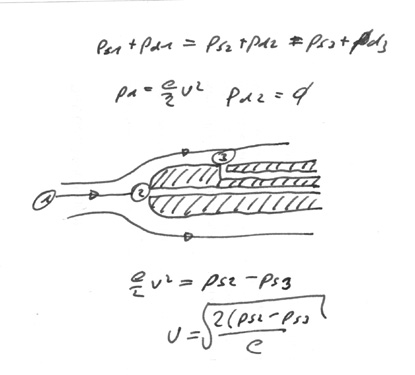 ps1 + pd1 = ps2 + pd2 = ps2 + pd3
pd = ρ/2 v² pd2 = 0
3
1 2
ρ/2 v² = ps2 - ps3
v = √(2(ps2 - ps3)/ρ)